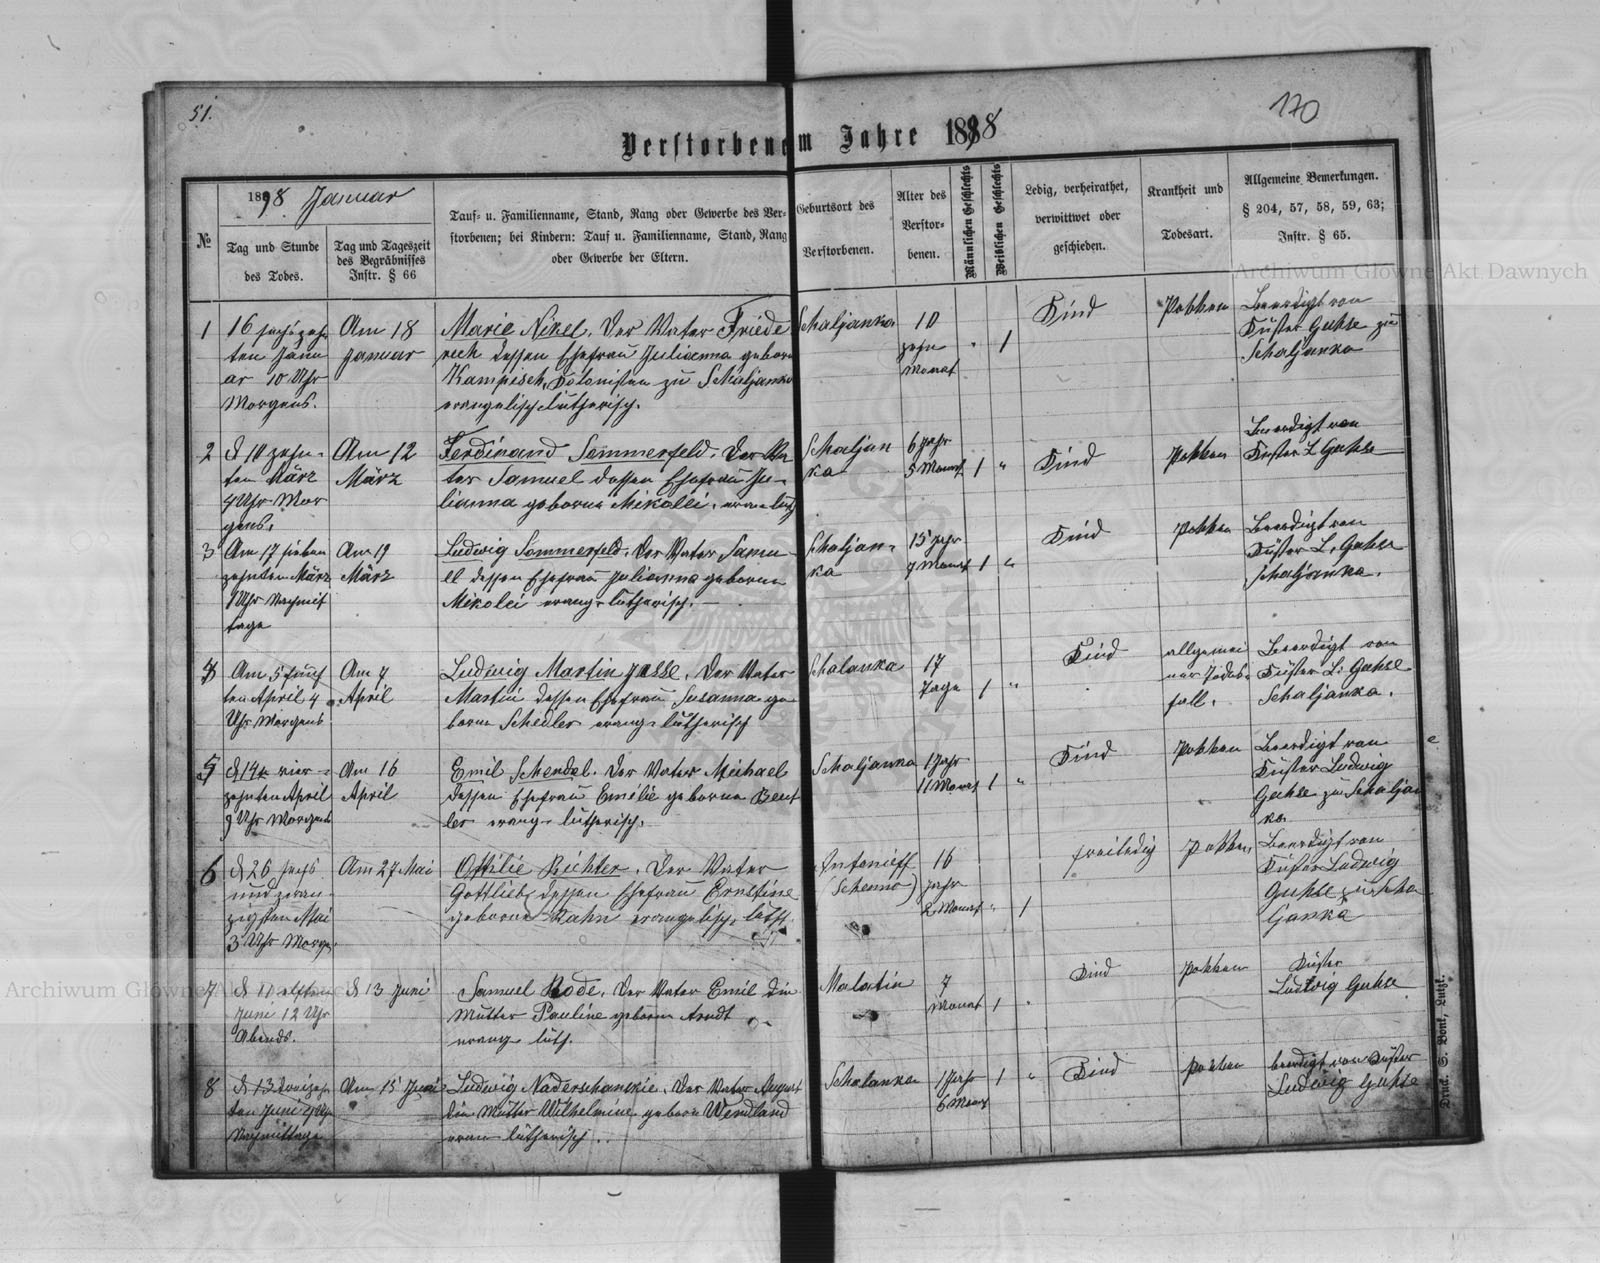 51.
170
Verstorbene im Jahre 1898
1898 Januar
№
Tag und Stunde
des Todes.
Tag und Tageszeit
des Begräbnisses
Instr. § 66
Tauf- u. Familienname, Stand, Rang oder Gewerbe des Ver-
storbenen; bei Kindern: Tauf u. Familienname, Stand, Rang
oder Gewerbe der Eltern.
Geburtsort des
Verstorbenen.
Alter des
Verstor-
benen.
Männlichen Geschlechts
Weiblichen Geschlechts
Ledig, verheirathet,
verwittwet oder
geschieden.
Krankheit und
Todesart.
Allgemeine Bemerkungen.
§ 204, 57, 58, 59, 63;
Instr. § 65.
1
16 sechszehn
ten Janu
ar 10 Uhr
Morgens.
Am 18
Januar
Marie Nikel. Der Vater Friede
rich dessen Ehefrau Julianna geborne
Kampisch, Kolonisten zu Schaljanka
evangelisch lutherisch.
Schaljanka
10
zehn
Monat
" 1
Kind
Pokken
Beerdigt von
Küster Guhse zu
Schaljanka
2
d 10 zehn-
ten März
4 Uhr Mor
gens.
Am 12
März
Ferdinand Sommerfeld. Der Va
ter Samuel dessen Ehefrau Ju-
lianna geborne Mikolei. evan luth
Schaljan
ka
6 Jahr
5 Monat
1 "
Kind
Pokken
Beerdigt von
Küster L Guhse
3
Am 17 sieben
zehnten März
1 Uhr Nachmit
tage
Am 19
März
Ludwig Sommerfeld. Der Vater Samu-
el dessen Ehefrau Julianna geborne
Mikolei evang- lutherisch.
Schaljan-
ka
15 Jahr
7 Monat
1 "
Kind
Pokken
Beerdigt von
Küster L. Guhse
Schaljanka.
4
Am 5 fünf
ten April 4
Uhr Morgens
Am 7
April
Ludwig Martin Jesse. Der Vater
Martin dessen Ehefrau Susanna ge
borne Schedler evang- lutherisch
Schalanka
17
Tage
1 "
Kind
allgemei
ner Todes-
fall.
Beerdigt von
Küster L. Guhse
Schaljanka.
5
d 14t vier-
zehnten April
9 Uhr Morgens
Am 16
April
Emil Schendel. Der Vater Michael
dessen Ehefrau Emilie geborne Beut
ler evang- lutherisch.
Schaljanka
1 Jahr
11 Monat
1 "
Kind
Pokken
Beerdigt von
Küster Ludwig
Guhse zu Schaljan
ka
6
d 26 sechs
und zwan
zigsten Mai
3 Uhr Morge.
Am 27 Mai
Ottilie Richter. Der Vater
Gottlieb dessen Ehefrau Ernstine
geborne Kahn evangelisch, luth.
Antonieff
(Schenno)
16
Jahr
2 Monat
" 1
freiledig
Pokken
Beerdigt von
Küster Ludwig
Guhse zu Scha
ljanka
7
d 11 elften
Juni 12 Uhr
Abends.
d 13 Juni
Samuel Rode. Der Vater Emil die
Mutter Pauline geborne Arndt
evang- luth.
Malatin
7
Monat
1 "
Kind
Pokken
Küster
Ludwig Guhse
8
d 13 dreizehn
ten Juni
Nachmittage
Am 15 Juni
Ludwig Naderschanskie. Der Vater August
die Mutter Wilhelmine geborne Wendland
evan lutherisch.
Schalanka
1 Jahr
6 Monat
1 "
Kind
Pokken
beerdigt von Küster
Ludwig Guhse
Druck. S. Bonk, Lutzk.
Archiwum Główne Akt Dawnych
Archiwum Główne Akt Dawnych